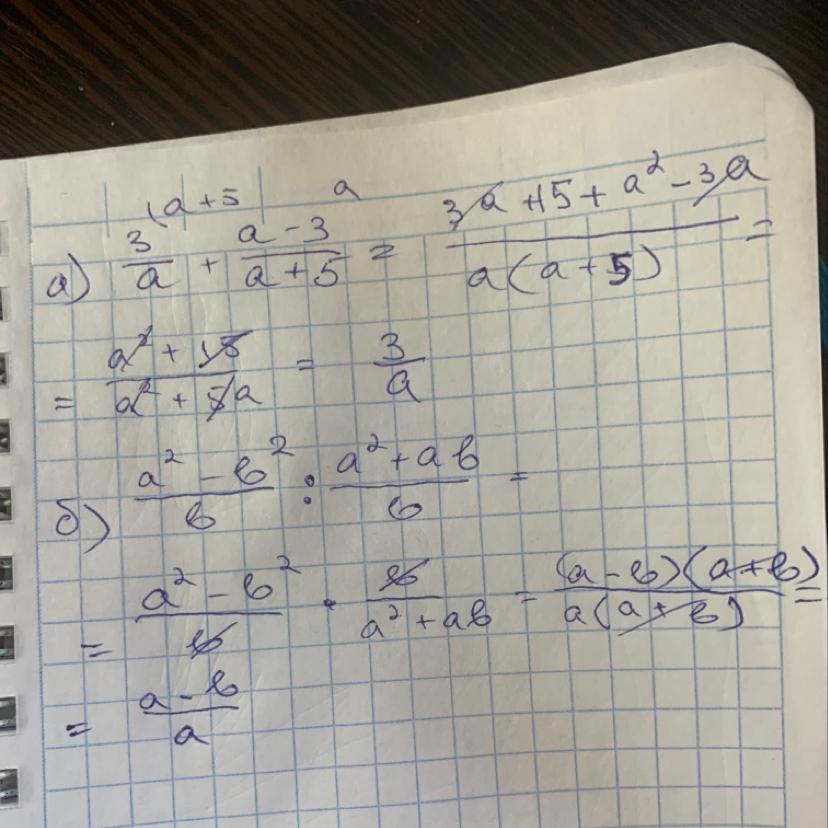 (a+5 a
а) 3/a + (a-3)/(a+5) = (3a+15+a²-3a)/(a(a+5)) =
= (a²+15)/(a²+5a) = 3/a
б) (a²-b²)/b : (a²+ab)/b =
= (a²-b²)/b · b/(a²+ab) = ((a-b)(a+b))/(a(a+b)) =
= (a-b)/a